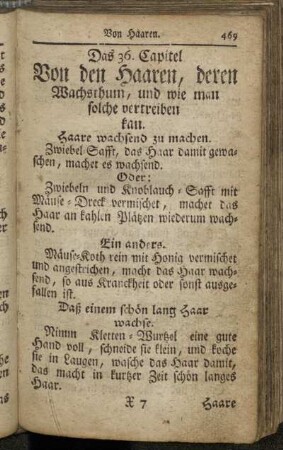 Von Haaren. 469
Das 36. Capitel
Von den Haaren, deren
Wachsthum, und wie man
solche vertreiben
kan.
Haare wachsend zu machen.
Zwiebel-Safft, das Haar damit gewa-
schen, machet es wachsend.
Oder:
Zwiebeln und Knoblauch-Safft mit
Mäuse-Dreck vermischet, machet das
Haar an kahlen Plätzen wiederum wach-
send.
Ein anders.
Mäuse-Koth rein mit Honig vermischet
und angestrichen, macht das Haar wach-
send, so aus Kranckheit oder sonst ausge-
fallen ist.
Daß einem schön lang Haar
wachse.
Nimm Kletten-Wurtzel eine gute
Hand voll, schneide sie klein, und koche
sie in Laugen, wasche das Haar damit,
das macht in kurtzer Zeit schön langes
Haar.
X 7 Haare